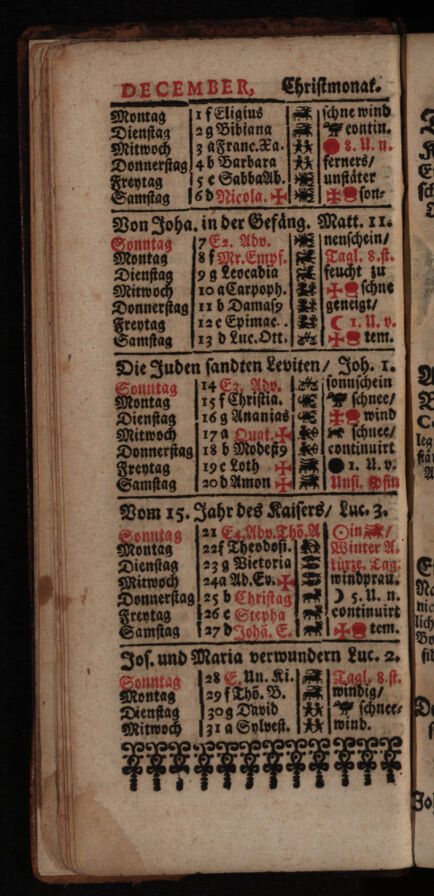 DECEMBER, Christmonat.
Montag 1 f Eligius schne wind
Dienstag 2 g Bibiana contin.
Mitwoch 3 a Franc. Xa. 8. U. n.
Donnerstag 4 b Barbara ferners/
Freytag 5 c SabbaAb. unstäter
Samstag 6 d Nicola. son-
Von Joha. in der Gefäng. Matt. 11.
Sonntag 7 E2. Adv. nenschein/
Montag 8 f Mr. Empf. Tagl. 8. st.
Dienstag 9 g Leocadia feucht zu
Mitwoch 10 a Carpoph. schne
Donnerstag 11 b Damas9 geneigt/
Freytag 12 c Epimac. 1. U. v.
Samstag 13 d Luc. Ott. tem.
Die Juden sandten Leviten/ Joh. 1.
Sonntag 14 E3. Adv. sonnschein
Montag 15 f Christia. schnee/
Dienstag 16 g Ananias wind
Mitwoch 17 a Quat. schnee/
Donnerstag 18 b Modest9 continuirt
Freytag 19 c Loth 1. U. v.
Samstag 20 d Amon Unst.
Vom 15. Jahr des Kaisers/ Luc. 3.
Sonntag 21 E4. Adv. Thõ. A in /
Montag 22 f Theodosi. Winter A.
Dienstag 23 g Victoria kürze. Tag.
Mitwoch 24 a Ad. Ev. windprau.
Donnerstag 25 b Christag 5. U. n.
Freytag 26 c Stepha continuirt
Samstag 27 d Johã. E. tem.
Jos. und Maria verwundern Luc. 2.
Sonntag 28 E. Un. Ki. Tagl. 8. st.
Montag 29 f Thõ. B. windig/
Dienstag 30 g David schnee/
Mitwoch 31 a Sylvest. wind.